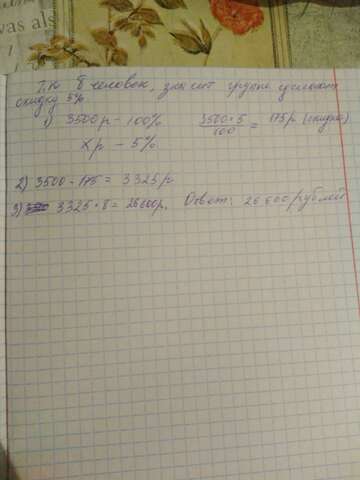 was als
Т.к 8 человек, значит группе сделают
скидку 5%
1) 3500р – 100%   3500•5/100 = 175р (скидка)
Хр – 5%
2) 3500 - 175 = 3325р
3) 3325•8 = 26600р. Ответ: 26 600 рублей